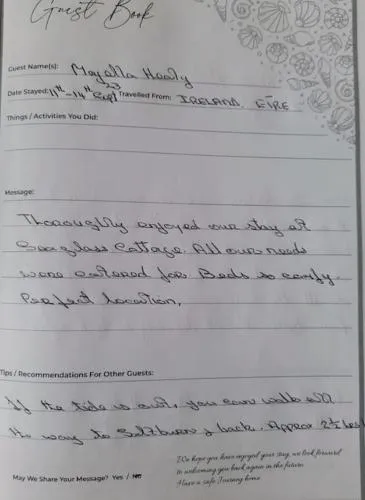 Guest Book
Guest Name(s): Majella Healy
Date Stayed: 11th-14th Sept 23 Travelled From: IRELAND, EIRE
Things / Activities You Did:
Message:
Thoroughly enjoyed our stay at
Seaglass Cottage. All our needs
were catered for. Beds so comfy.
Perfect location.
Tips / Recommendations For Other Guests:
If the tide is out, you can walk all
the way to Saltburn & back. Approx 2½ hrs
May We Share Your Message? Yes / No
We hope you have enjoyed your stay, we look forward
to welcoming you back again in the future
Have a safe Journey home